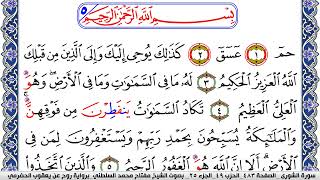 بِسْمِ ٱللَّهِ ٱلرَّحْمَٰنِ ٱلرَّحِيمِ
حمٓ ١ عٓسٓقٓ ٢ كَذَٰلِكَ يُوحِيٓ إِلَيْكَ وَإِلَى ٱلَّذِينَ مِن قَبْلِكَ
ٱللَّهُ ٱلْعَزِيزُ ٱلْحَكِيمُ ٣ لَهُۥ مَا فِي ٱلسَّمَٰوَٰتِ وَمَا فِي ٱلْأَرْضِ وَهُوَ
ٱلْعَلِيُّ ٱلْعَظِيمُ ٤ تَكَادُ ٱلسَّمَٰوَٰتُ يَنفَطِرْنَ مِن فَوْقِهِنَّ
وَٱلْمَلَٰٓئِكَةُ يُسَبِّحُونَ بِحَمْدِ رَبِّهِمْ وَيَسْتَغْفِرُونَ لِمَن فِي
ٱلْأَرْضِ أَلَآ إِنَّ ٱللَّهَ هُوَ ٱلْغَفُورُ ٱلرَّحِيمُ ٥ وَٱلَّذِينَ ٱتَّخَذُوا۟
سورة الشورى الصفحة ٤٨٣ الحزب ٤٩ الجزء ٢٥ بصوت الشيخ مفتاح محمد السلطني برواية روح عن يعقوب الحضرمي